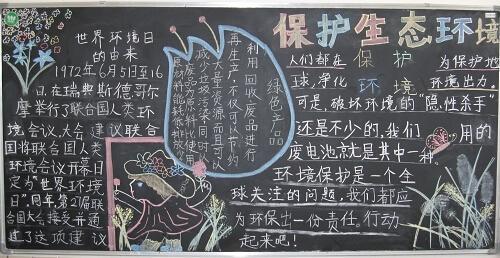 保护生态环境
世界环境日
的由来
1972年6月5日至16
日,在瑞典斯德哥尔
摩举行了联合国人类环
境会议,大会建议联合
国将联合国人类
环境会议开幕日
定为"世界环境
日",同年,第27届联
合国大会接受并通
过了这项建议
绿色产品
利用回收废品进行
再生产,不仅可以节约
大量资源而且可以
减少垃圾污染同时
人们都在 保护 为保护地
球,净化 环境 环境出力,
可是,破坏环境的"隐性杀手"
还是不少的,我们 用的
废电池就是其中一种。
环境保护是一个全
球关注的问题,我们都应
为环保出一份责任。行动
起来吧!